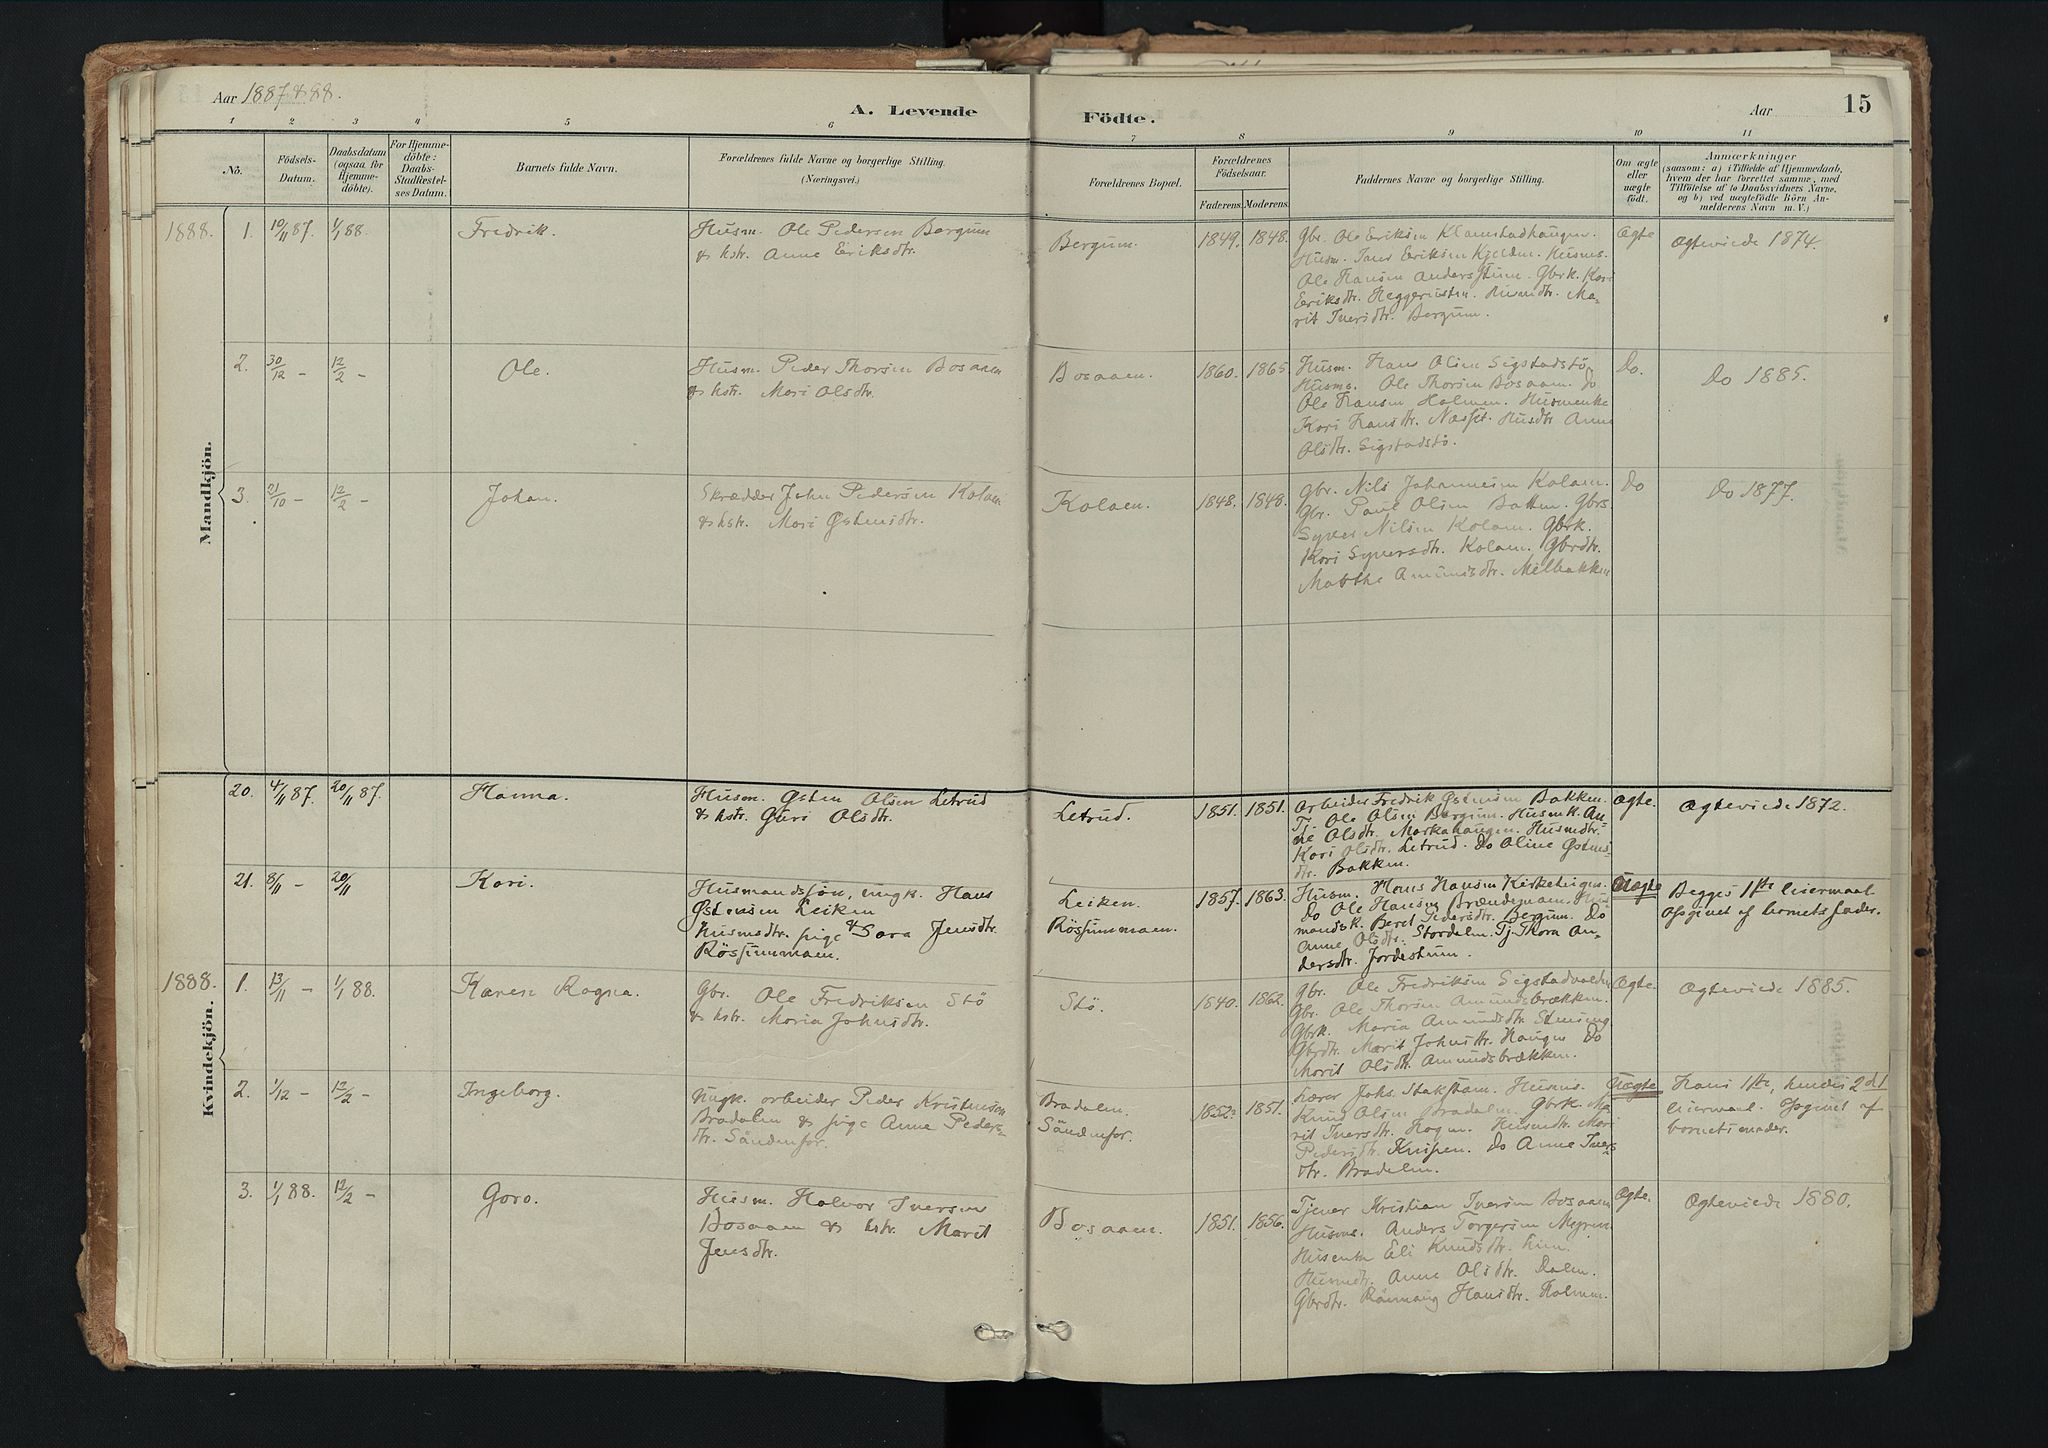 Aar 1887 & 88.
A. Levende Födte.
Aar
15
1 2 3 4 5 6 7 8 9 10 11
No.
Födsels-
Datum.
Daabsdatum
(ogsaa for
Hjemme-
döbte).
For Hjemme-
döbte:
Daabs-
Stadfæstel-
ses Datum.
Barnets fulde Navn.
Forældrenes fulde Navne og borgerlige Stilling.
(Næringsvei.)
Forældrenes Bopæl.
Forældrenes
Födselsaar.
Faderens. Moderens.
Faddernes Navne og borgerlige Stilling.
Om ægte
eller
uægte
födt.
Anmærkninger
(saasom: a) i Tilfælde af Hjemmedaab,
hvem der har forrettet samme, med
Tilföielse af to Daabsvidners Navne,
og b) ved uægtefödte Börn An-
melderens Navn m. V.)
Mandkjön.
1888. 1. 10/11 87. 1/1 88. Fredrik.
Husm. Ole Pedersen Bergum
& kstr. Anne Eriksdtr.
Bergum. 1849. 1848.
Gbr. Ole Eriksen Klamstadhaugen.
Husm. Iver Eriksen Kjelden. Husms.
Ole Hansen Andersstuen. Gbrk. Kari
Eriksdtr. Heggerusten. Husmdtr. Ma-
rit Iversdtr. Bergum.
Ægte
Ægteviede 1874.
2. 30/12 - 12/2 - Ole.
Husm. Peder Thorsen Bosaaen
& kstr. Mari Olsdtr.
Bosaaen. 1860. 1865.
Husm. Hans Olsen Sigstadstö.
Husms. Ole Thorsen Bosaaen. Do
Ole Hansen Holmen. Husmenke
Kari Hansdtr. Næsset. Husdtr Anne
Olsdtr. Sigstadstö.
Do.
Do 1885.
3. 21/10 - 12/2 - Johan.
Skrædder John Pedersen Kolaen
& kstr. Mari Østensdtr.
Kolaen. 1848. 1848.
Gbr. Nils Johannesen Kolaen.
Gbr. Paul Olsen Batten. Gbrs
Syver Nilsen Kolaen. Gbrk.
Kari Syversdtr. Kolaen. Gbrdtr.
Mathe Amundsdtr. Melbakken
Do
Do 1877.
Kvindekjön.
20. 4/11 87. 20/11 87. Hanna.
Husm. Østen Olsen Letrud
& kstr. Guri Olsdtr.
Letrud. 1851. 1851.
Arbeider Fredrik Østensen Bakken.
Tj. Ole Olsen Bergum. Husmk. An-
ne Olsdtr. Markahaugen. Husmdtr.
Kari Olsdtr. Letrud. Do Oline Østens-
dtr. Bakken.
Ægte.
Ægteviede 1872.
21. 8/11 - 20/11 Kari.
Husmandssøn, ungk. Hans
Østensen Leiken
& Husmdtr. pige Sara Jensdtr.
Rössummoen.
Leiken.
Rössummoen.
1857. 1863.
Husm. Hans Hansen Kirkestuen.
Do Ole Hansen Brændemoen. Hus-
mandsk. Beret Pedersdtr. Bergum. Do
Anne Olsdtr. Stordalen. Tj. Thora An-
dersdtr. Jordestuen.
Uægte
Begges 1ste leiermaal.
Opgivet af barnets fader.
1888. 1. 13/11 - 1/1 88. Karen Ragna.
Gbr. Ole Fredriksen Stö
& kstr. Maria Johnsdtr.
Stö. 1840. 1862.
Gbr. Ole Fredriksen Sigstadvolden
Gbr. Ole Thorsen Amundsbrækken.
Gbrk. Maria Amundsdtr.
Gbrdtr. Marit Johnsdtr. Haugen Do
Marit Olsdtr. Amundsbrækken.
Ægte.
Ægteviede 1885.
2. 1/12 - 12/2 - Ingeborg.
Ungk. arbeider Peder Kristensen
Bradalen & pige Anne Peders-
dtr. Sändenfor.
Bradalen.
Sändenfor.
1852. 1851.
Lærer Johs. Stakstøen. Husms.
Knud Olsen Bradalen. Gbrk. Ma-
rit Iversdtr. Hagen. Husmdtr. Mari
Pedersdtr. Knipen. Do Anne Ivers-
dtr. Bradalen.
Uægte
Hans 1ste, hendes 2det
leiermaal. Opgivet af
barnets moder.
3. 1/1 88. 12/2 - Goro.
Husm. Halvor Iversen
Bosaaen & kstr. Marit
Jensdtr.
Bosaaen. 1851. 1856.
Tjener Kristian Iversen Bosaaen
Husms. Anders Torgersen
Husenke Eli Knudsdtr. Lien.
Husmdtr. Anne Olsdtr. Dalen.
Gbrdtr. Rönnaug Hansdtr. Holmen.
Ægte.
Ægteviede 1880.